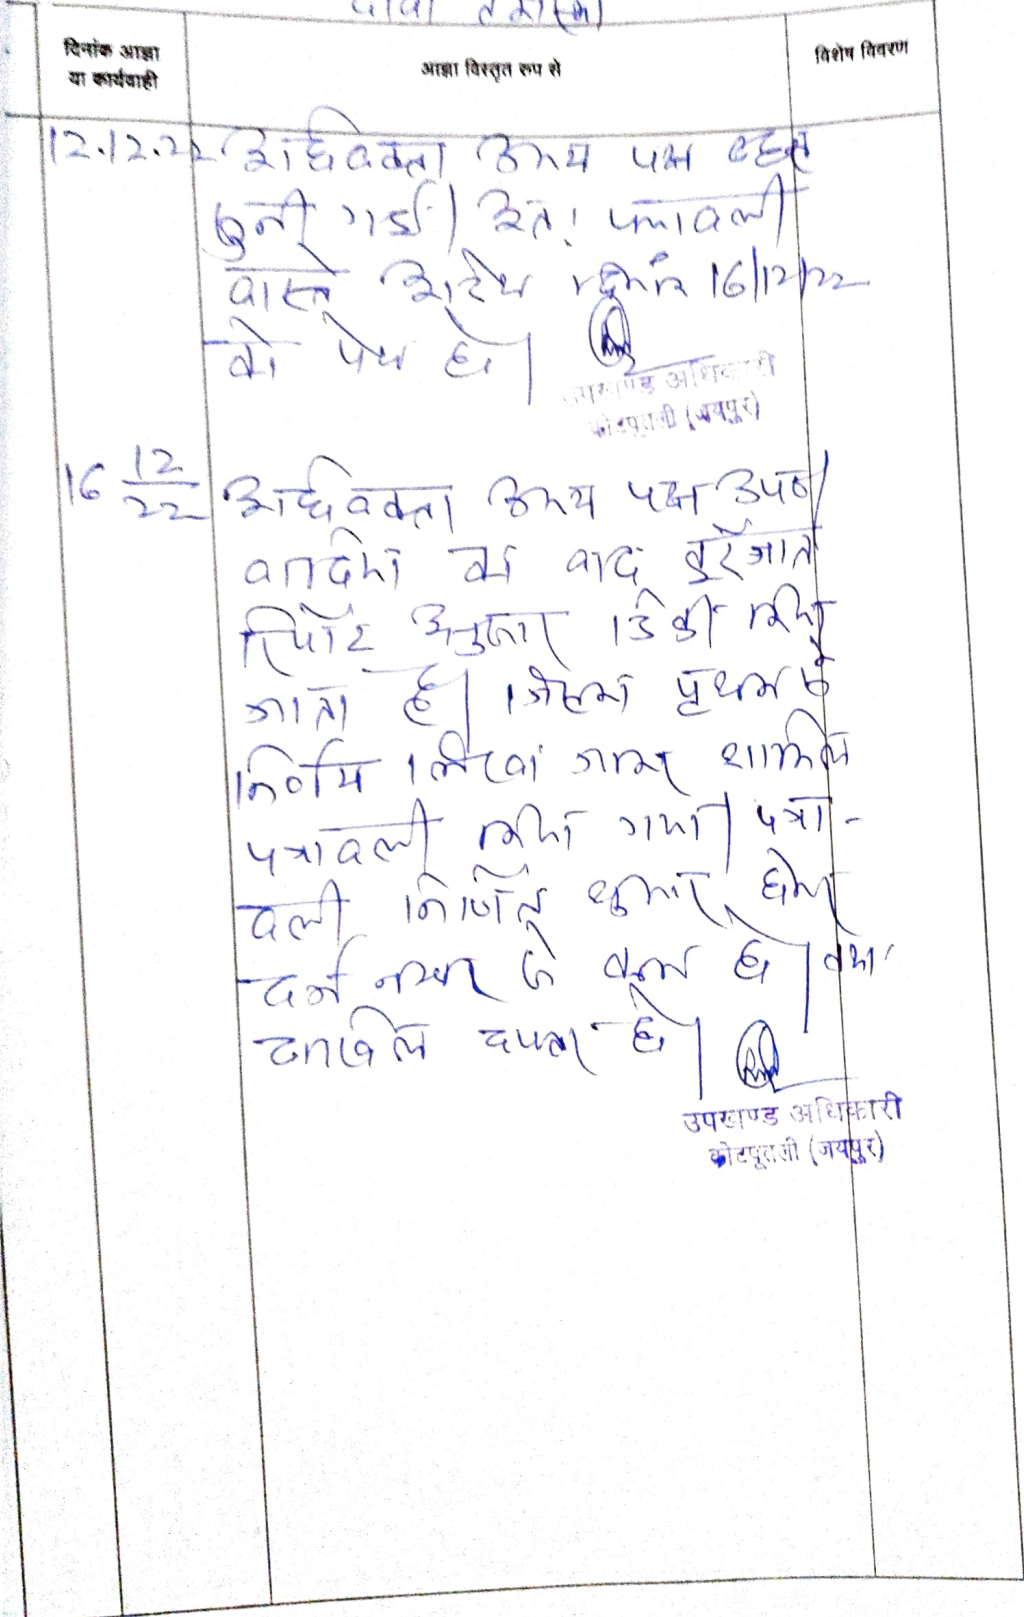 दिनांक आज्ञा
या कार्यवाही
आज्ञा विस्तृत रूप से
विशेष विवरण
12.12.22 अधिवक्ता उभय पक्ष बहस
सुनी गई। अतः पत्रावली
वास्ते आदेश दिनांक 16/12/22
को पेश हो।
उपखण्ड अधिकारी
कोटपूतली (जयपुर)
16 12/22 अधिवक्ता उभय पक्ष उप०।
वादीया का वाद कुर्रेजात
रिपोर्ट अनुसार डिक्री किया
जाता है। जिसका पृथक से
निर्णय लिखा जाकर शामिल
पत्रावली किया गया। पत्रा-
वली निर्णित शुमार होकर
दर्ज नम्बर से कम हो। तथा
दाखिल दफ्तर हो।
उपखण्ड अधिकारी
कोटपूतली (जयपुर)